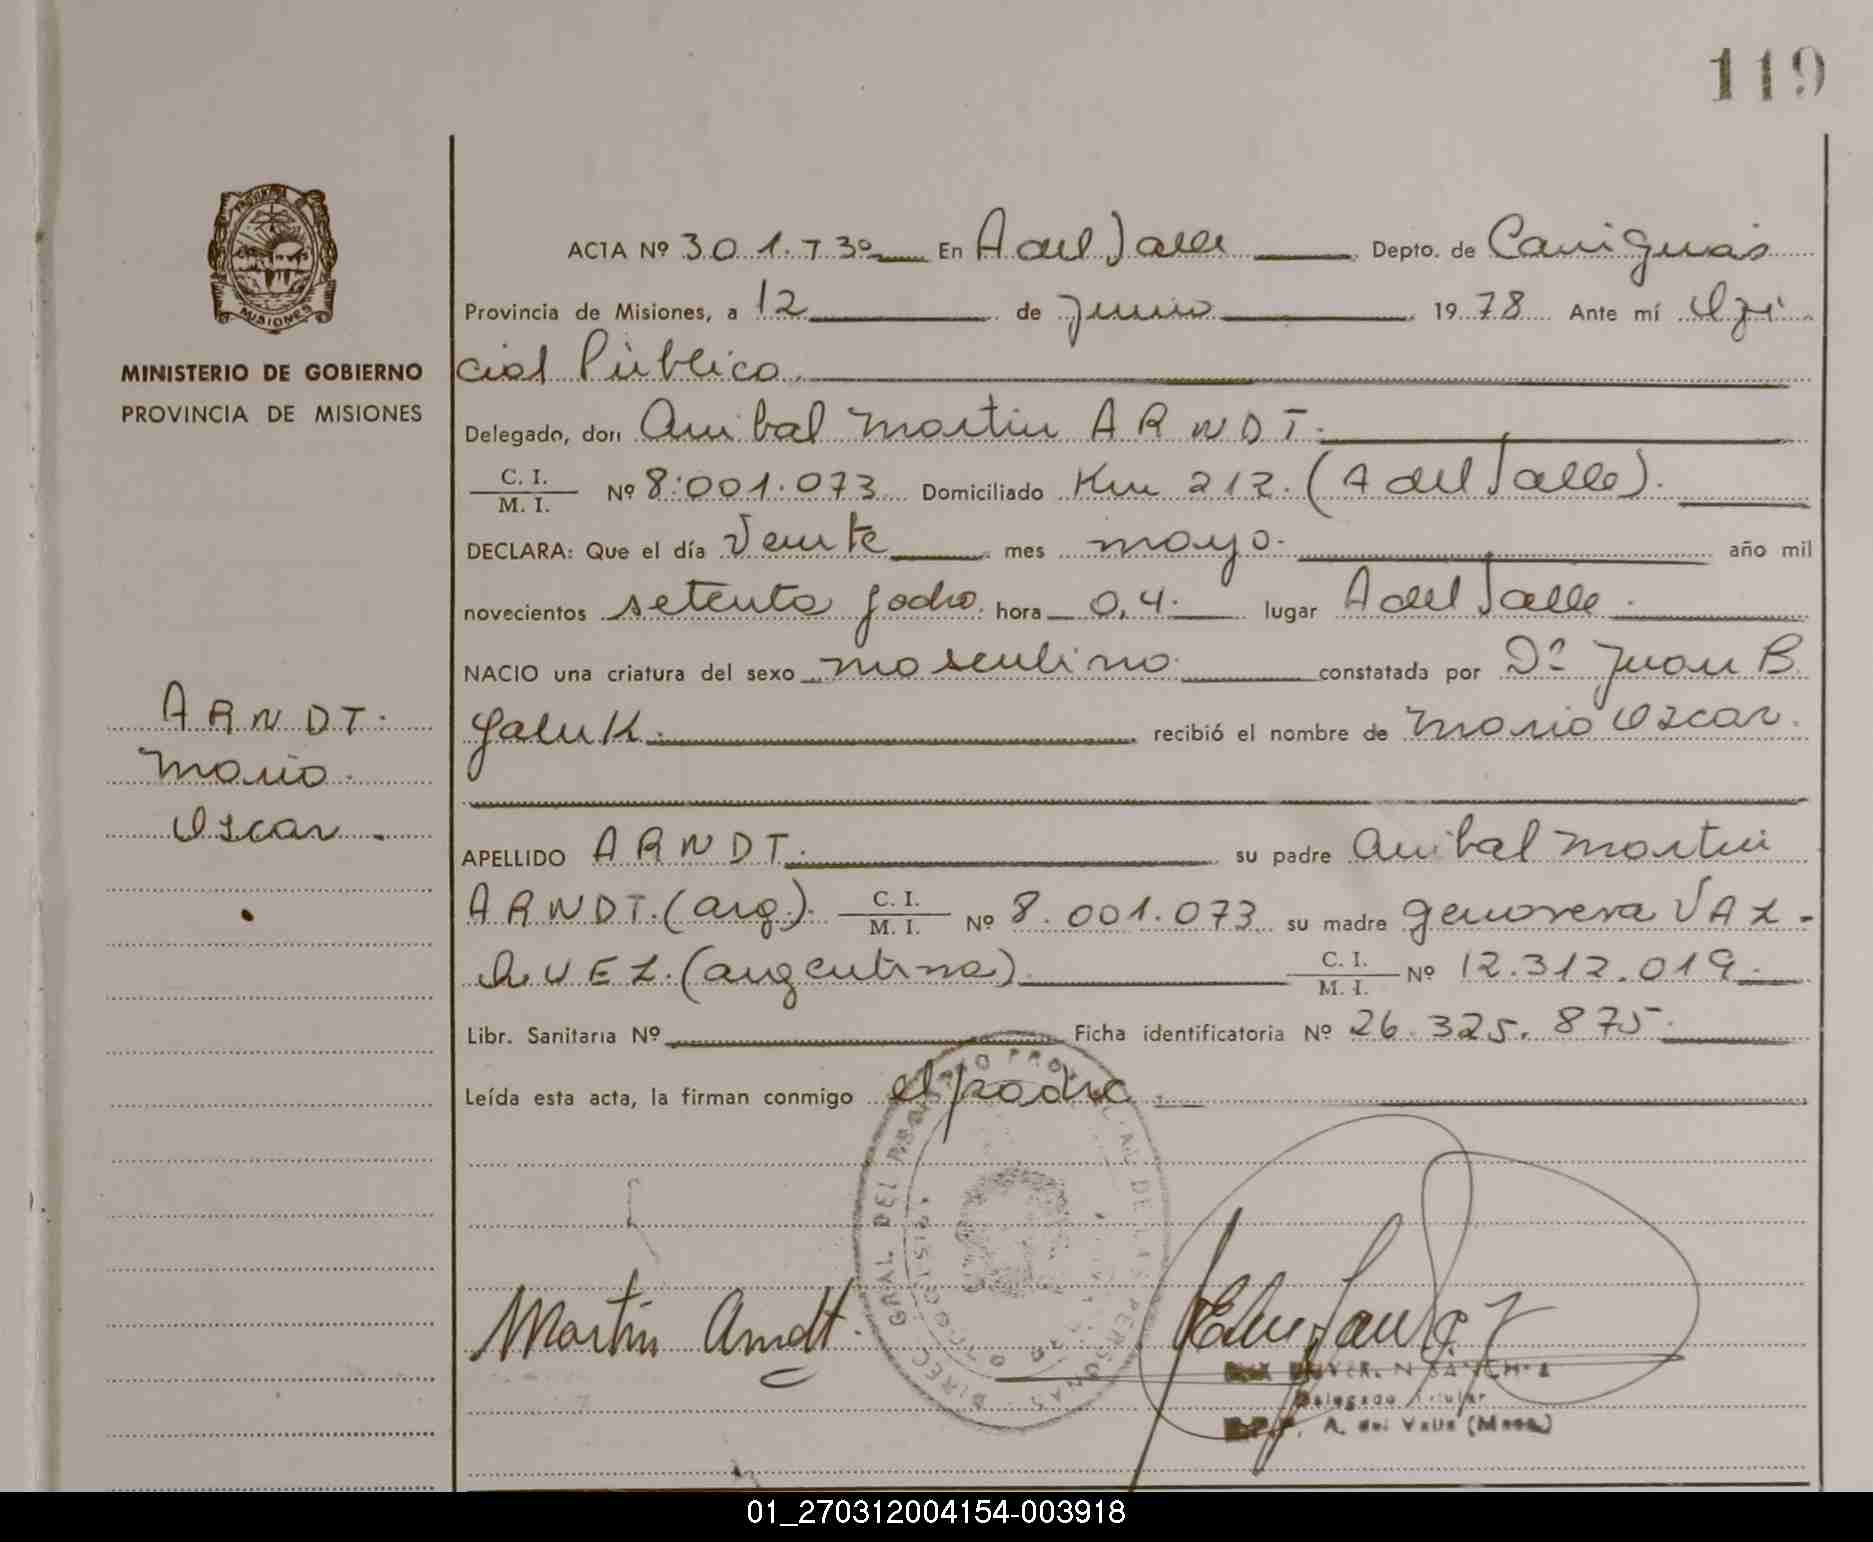 119
ACTA Nº 301. T 3º En A del Valle Depto. de Cainguás
Provincia de Misiones, a 12 de Junio 1978 Ante mí Ofi
cial Público.
Delegado, don Anibal Martin ARNDT.
C. I.
M. I.
Nº 8.001.073 Domiciliado Km 212. (A del Valle).
DECLARA: Que el día Veinte mes mayo. año mil
novecientos setenta y ocho. hora 0,4. lugar A del Valle.
NACIO una criatura del sexo masculino. constatada por Dr. Juan B.
Galuk. recibió el nombre de Mario Oscar.
APELLIDO ARNDT. su padre Anibal Martin
ARNDT. (arg). C. I.
M. I.
Nº 8.001.073 su madre Genoveva VAZ-
QUEZ. (argentina). C. I.
M. I.
Nº 12.312.019.
Libr. Sanitaria Nº Ficha identificatoria Nº 26.325.875.
Leída esta acta, la firman conmigo el padre.
PROVINCIA
MISIONES
MINISTERIO DE GOBIERNO
PROVINCIA DE MISIONES
ARNDT.
Mario.
Oscar.
Martin Arndt.
DIREC. GRAL. DEL REGISTRO PROVINCIAL DE LAS PERSONAS
Delegado Titular
A. del Valle (Mnes.)
01_270312004154-003918